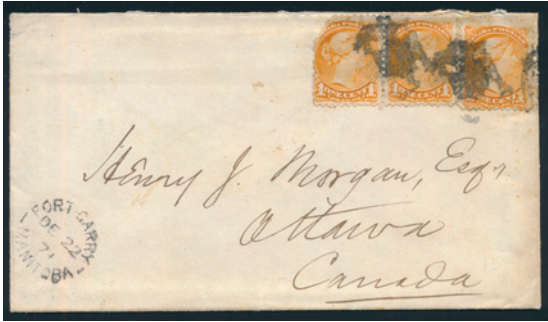 1 ONE CENT 1
1 ONE CENT 1
ONE CENT
Henry J. Morgan, Esqr
Ottawa
Canada
FORT-GARRY
DE 22
71
MANITOBA